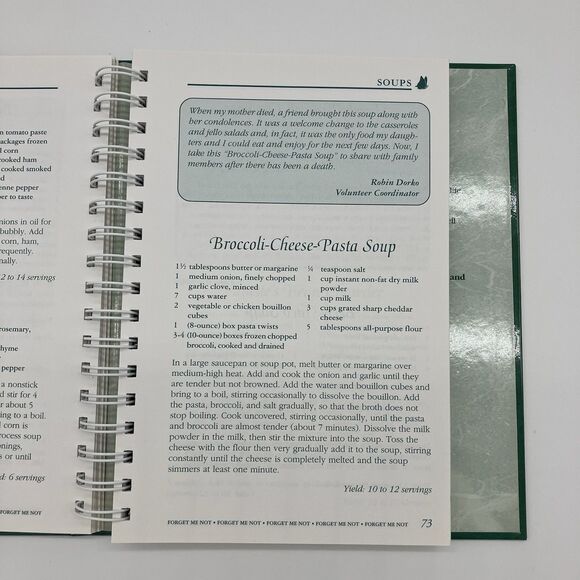 n tomato paste
ackages frozen
l corn
cooked ham
cooked smoked
d
enne pepper
per to taste
nions in oil for
bubbly. Add
corn, ham,
requently.
nally.
2 to 14 servings
rosemary,
hyme
r
d
a nonstick
d stir for 4
r about 5
ing to a boil.
d corn is
rocess soup
onings,
s or until
d: 6 servings
FORGET ME NOT
SOUPS
When my mother died, a friend brought this soup along with
her condolences. It was a welcome change to the casseroles
and jello salads and, in fact, it was the only food my daugh-
ters and I could eat and enjoy for the next few days. Now, I
take this "Broccoli-Cheese-Pasta Soup" to share with family
members after there has been a death.
Robin Dorko
Volunteer Coordinator
Broccoli-Cheese-Pasta Soup
1½ tablespoons butter or margarine
1 medium onion, finely chopped
1 garlic clove, minced
7 cups water
2 vegetable or chicken bouillon
cubes
1 (8-ounce) box pasta twists
3-4 (10-ounce) boxes frozen chopped
broccoli, cooked and drained
¼ teaspoon salt
1 cup instant non-fat dry milk
powder
1 cup milk
3 cups grated sharp cheddar
cheese
5 tablespoons all-purpose flour
In a large saucepan or soup pot, melt butter or margarine over
medium-high heat. Add and cook the onion and garlic until they
are tender but not browned. Add the water and bouillon cubes and
bring to a boil, stirring occasionally to dissolve the bouillon. Add
the pasta, broccoli, and salt gradually, so that the broth does not
stop boiling. Cook uncovered, stirring occasionally, until the pasta
and broccoli are almost tender (about 7 minutes). Dissolve the milk
powder in the milk, then stir the mixture into the soup. Toss the
cheese with the flour then very gradually add it to the soup, stirring
constantly until the cheese is completely melted and the soup
simmers at least one minute.
Yield: 10 to 12 servings
FORGET ME NOT • FORGET ME NOT • FORGET ME NOT • FORGET ME NOT • FORGET ME NOT 73
and